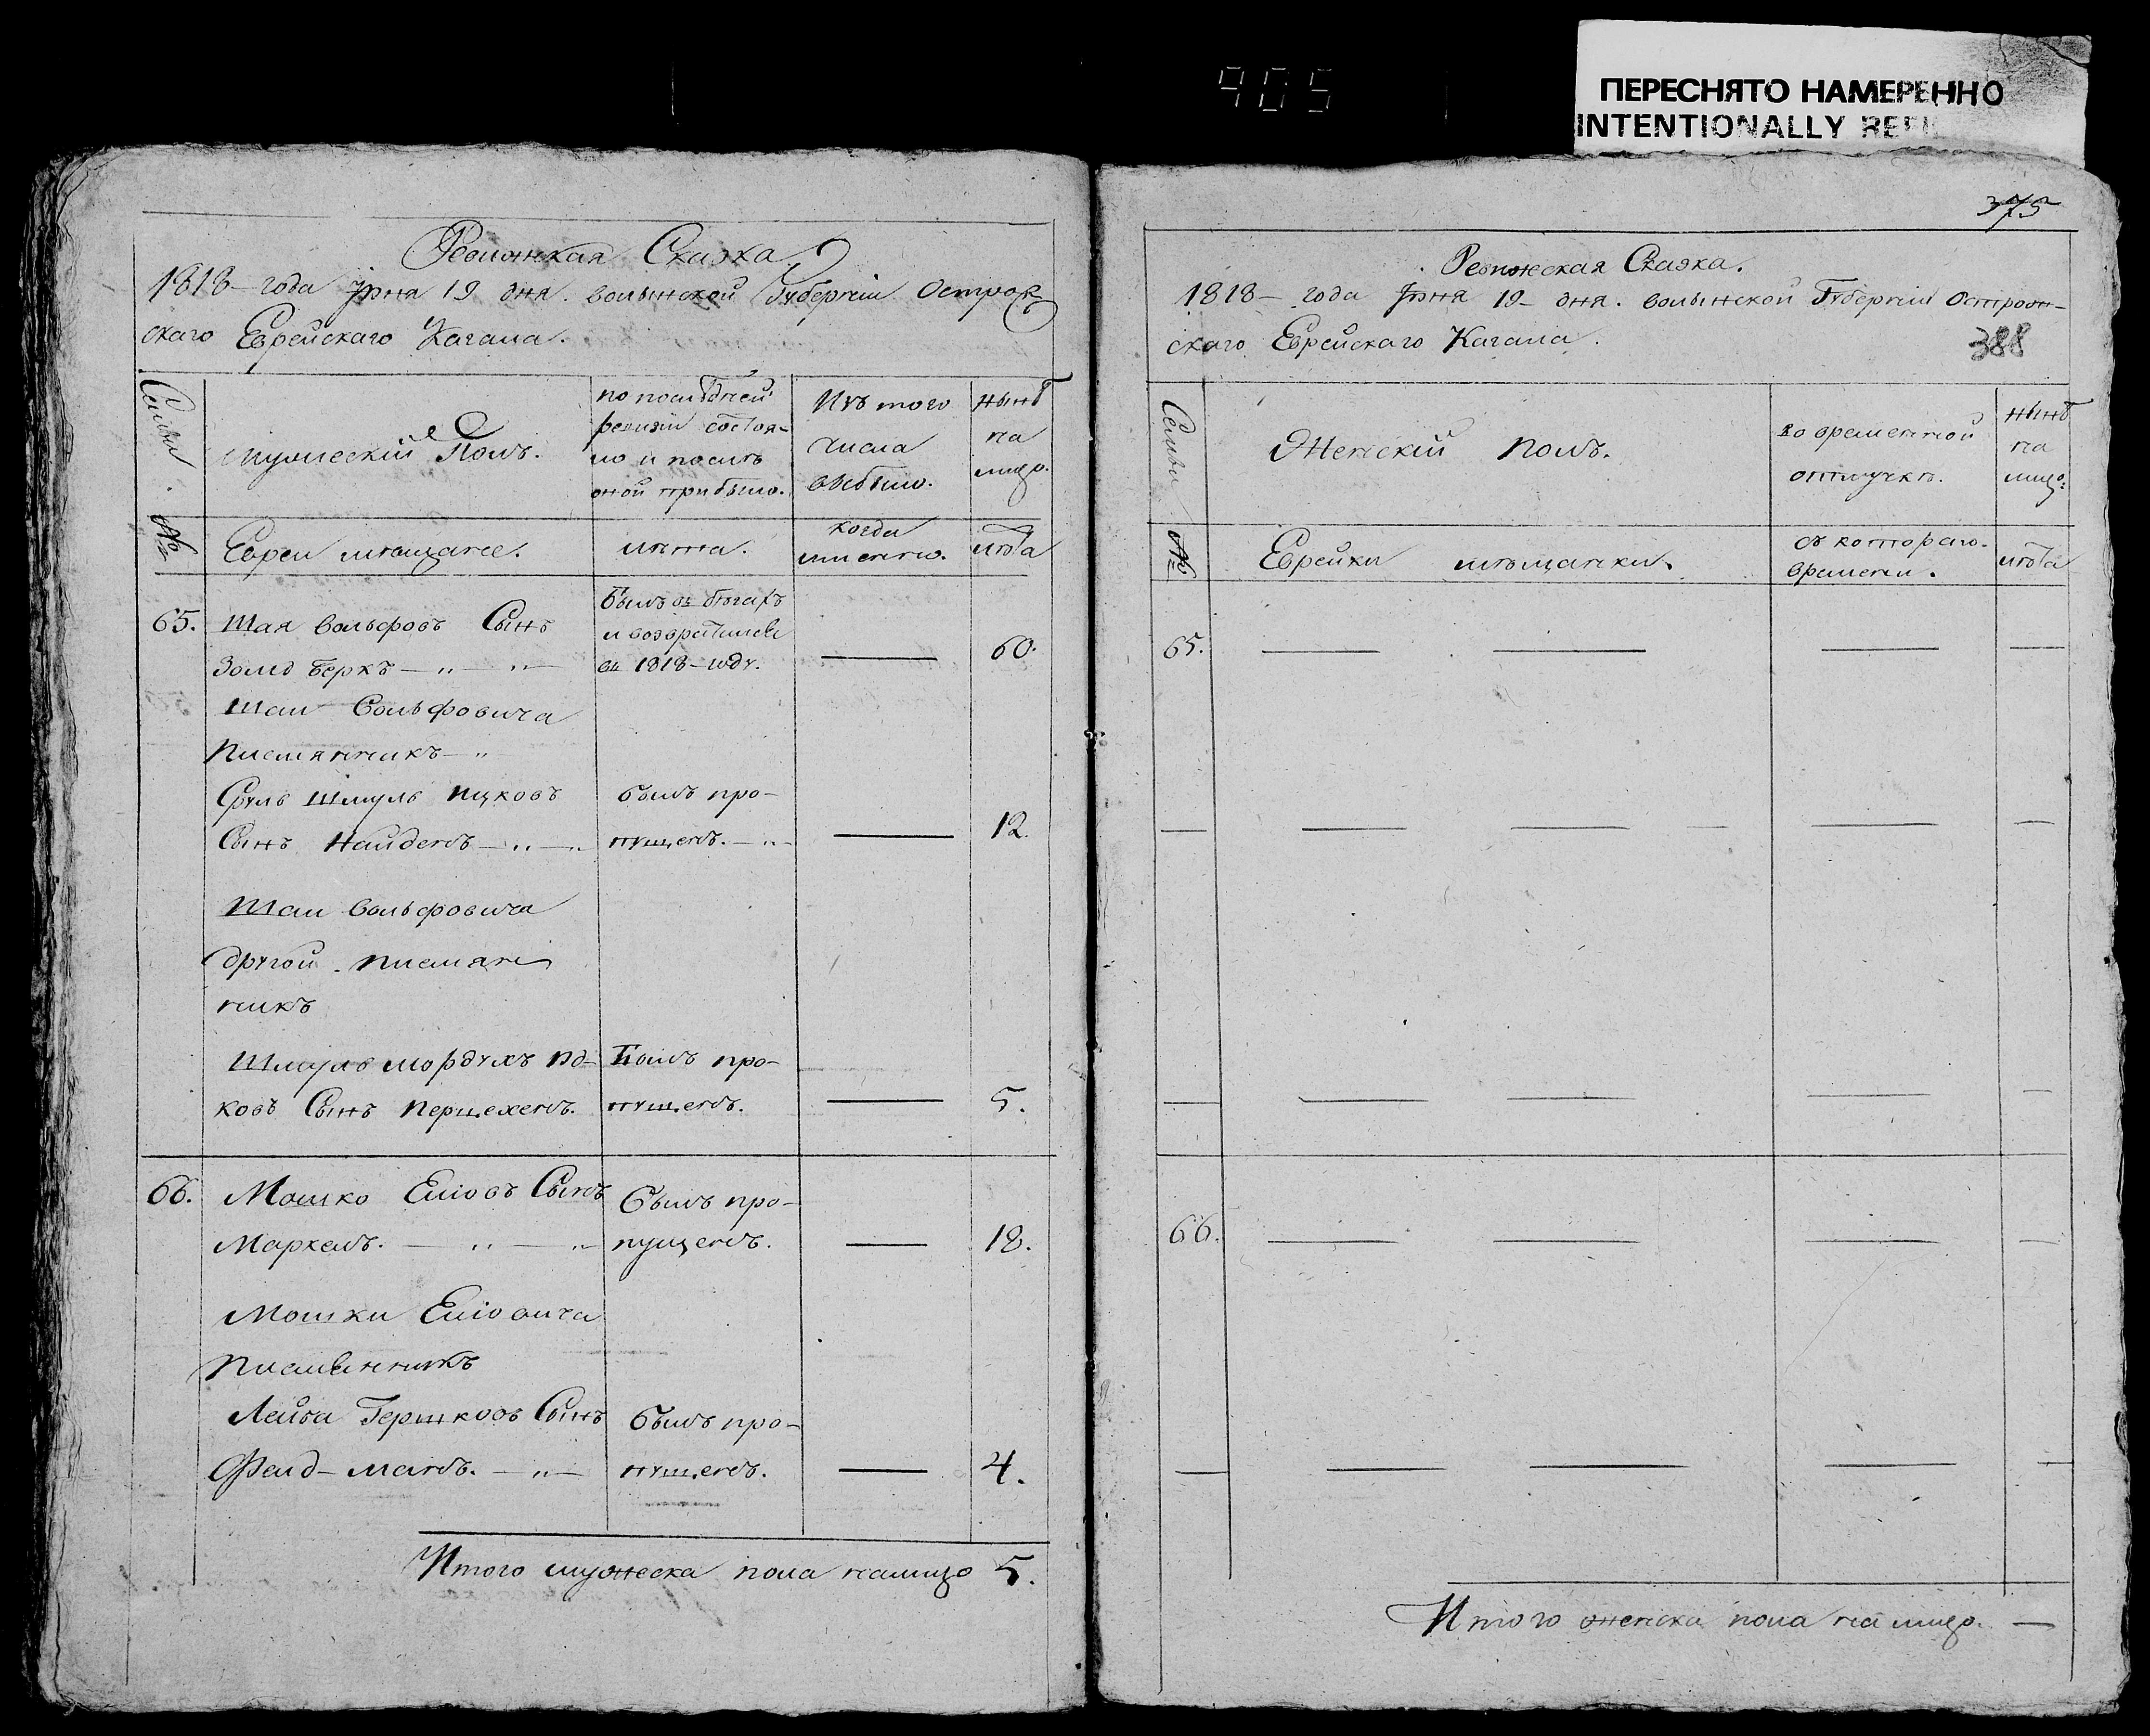 905
ПЕРЕСНЯТО НАМЕРЕННО
INTENTIONALLY REFI
Ревижская Сказка
1818 – года Іюня 19 дня. волынской Губерніи Острож
скаго Еврейскаго Кагала.
Семьи. №
мужескій Полъ.
по последней
ревизіи состоя-
ло и послѣ
оной прибыло.
Изъ того
числа
выбыло.
нынѣ
на
лицо.
Евреи мѣщане.
лѣта.
когда
именно.
лѣта
65. Шая вольфовъ Сынъ
Золд беркъ — „ — „ —
былъ въ бѣгахъ
и возвратился
въ 1818 – году.
60.
Шаи Вольфовича
Племянникъ — „
Сруль Шмуль ицковъ
Сынъ Найденъ — „ — „
былъ про-
пущенъ. — „ -
12.
Шаи вольфовича
другой племян
никъ
Шмуль мордухъ ид-
ковъ Сынъ
Былъ про-
пущенъ.
5.
66. Мошко Еліовъ Сынъ
Маркелъ. — „ — „
былъ про-
пущенъ.
18.
Мошки Еліовича
Племянникъ
Лейба Гершковъ Сынъ
Фелд - манъ. — „ —
былъ про-
пущенъ.
4.
Итого мужеска пола налицо 5.
375
Ревижская Сказка.
1818 – года Іюня 19 – дня. волынской Губерніи Острож-
скаго Еврейскаго Кагала.
388
Семьи №
Женскій полъ.
во временной
отлучкѣ.
нынѣ
на
лицо.
Еврейки мѣщанки.
съ котораго.
времени.
лѣта
65. — — — —
— — — — —
— — — — —
66. — — — —
— — — — —
Итого женска пола на лицо. —